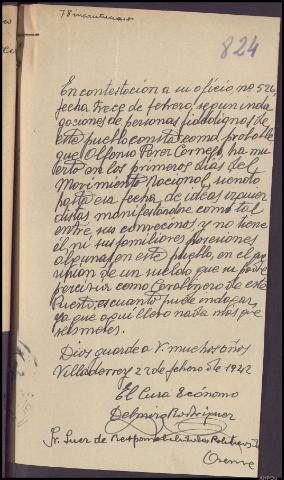 824
En contestacion a su oficio nº 526
fecha trece de febrero, segun inda
gaciones de personas fidedignas de
este pueblo consta como probable
que Alfonso Perez Cornejo ha mu
erto en los primeros días del
Movimiento Nacional, siendo
hasta esa fecha de ideas izquier
distas manifestandose como tal
entre sus convecinos y no tiene
él ni sus familiares posesiones
algunas en este pueblo, en el
de un sueldo que su padre
percivia como Carabinero de este
Puesto, es cuanto pude indagar
ya que aqui llevo nada mas que
seis meses.
Dios guarde a V. muchos años
Villaderrey 22 de febrero de 1942
El Cura Ecónomo
Delmiro Rodriguez
Sr. Juez de Responsabilidades Politicas de
Orense